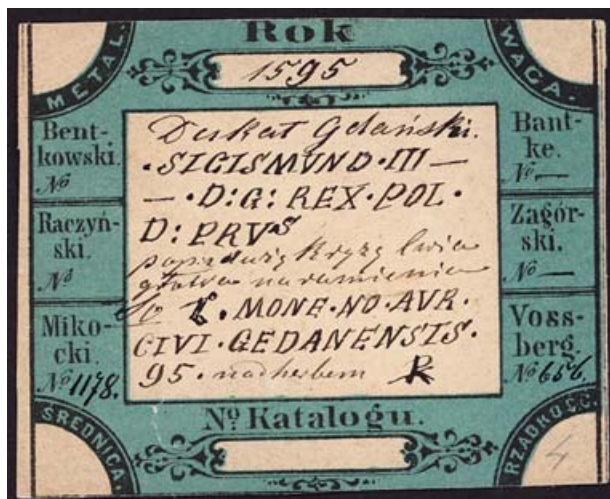 Rok
1595
METAL.
WAGA.
Bent-
kowski.
No
Raczyń-
ski.
No
Miko-
cki.
No 1178.
Dukat Gdański.
·SIGISMVND·III—
—·D:G:REX·POL·
D:PRVS
pod kryzą lwia
głowa na ramieniu
MONE·NO·AVR.
CIVI·GEDANENSIS.
95. nad herbem
Bant-
ke.
No —
Zagór-
ski.
No —
Voss-
berg.
No 656.
No Katalogu.
ŚREDNICA.
RZADKOŚĆ.
4